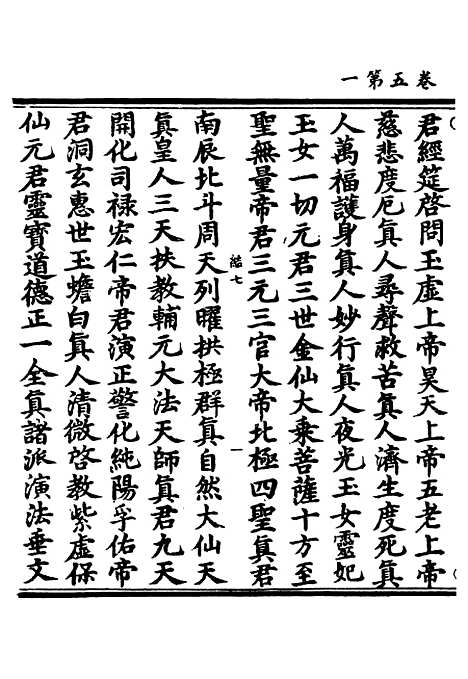 卷五第一
君經筵啓問玉虛上帝昊天上帝五老上帝
慈悲度厄真人尋聲救苦真人濟生度死真
人萬福護身真人妙行真人夜光玉女靈妃
玉女一切元君三世金仙大乘菩薩十方至
聖無量帝君三元三官大帝北極四聖真君
七
一
南辰北斗周天列曜拱極群真自然大仙天
真皇人三天扶教輔元大法天師真君九天
開化司祿宏仁帝君演正警化純陽孚佑帝
君洞玄惠世玉蟾白真人清微啓教紫虛保
仙元君靈寶道德正一全真諸派演法垂文